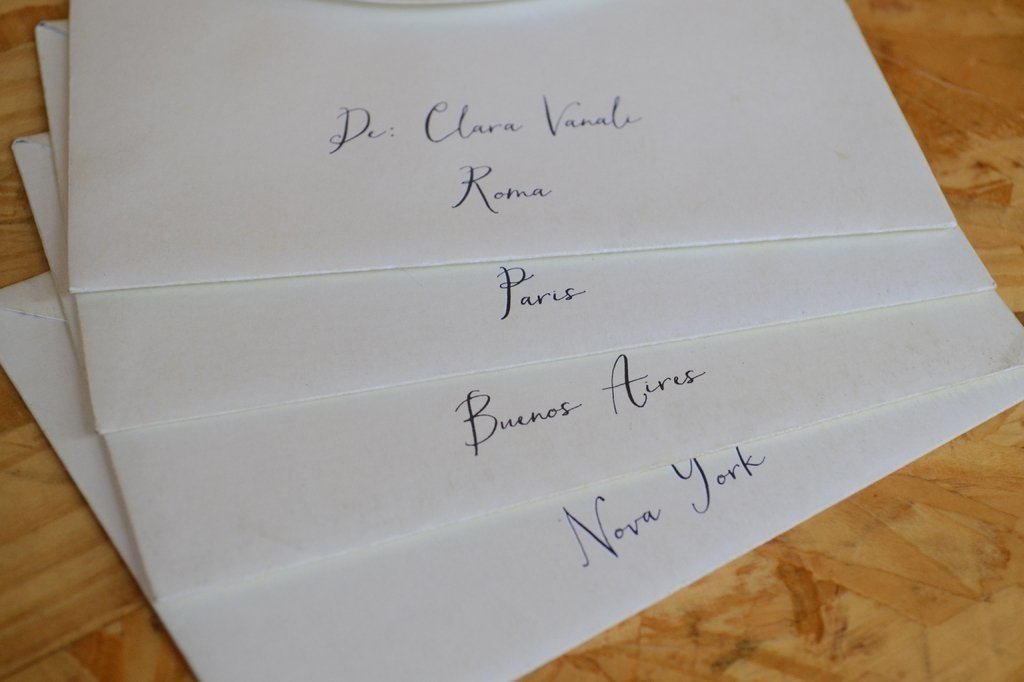 De: Clara Vanali
Roma
Paris
Buenos Aires
Nova York